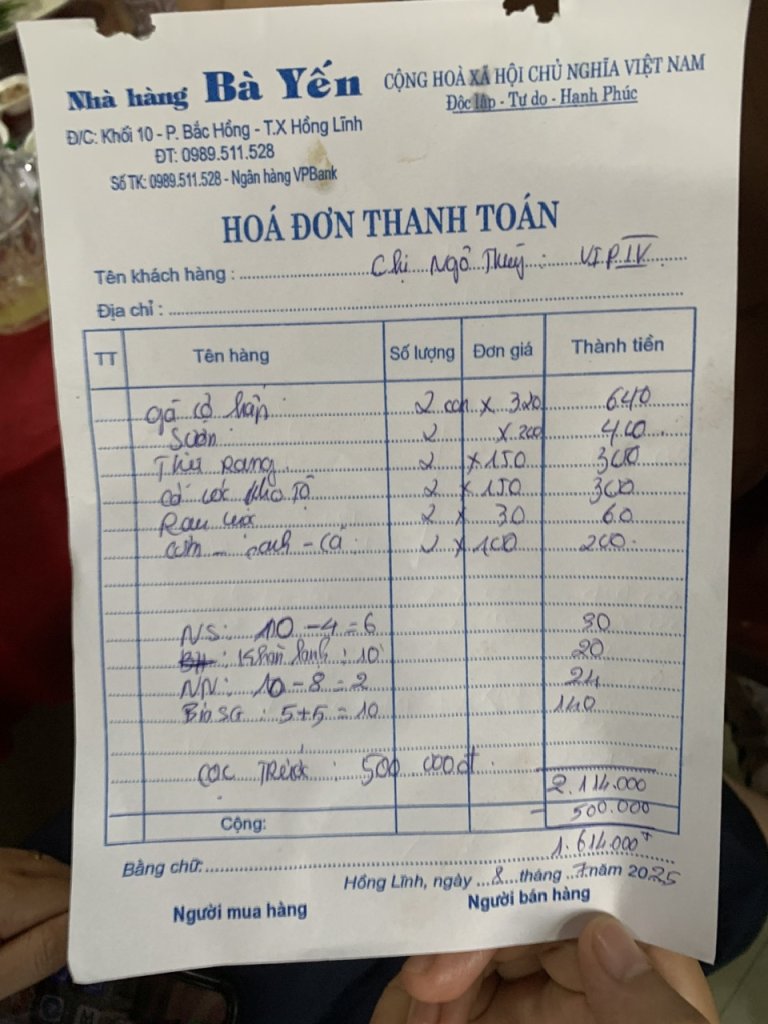 Nhà hàng Bà Yến
CỘNG HOÀ XÃ HỘI CHỦ NGHĨA VIỆT NAM
Độc lập - Tự do - Hạnh Phúc
Đ/C: Khối 10 - P. Bắc Hồng - T.X Hồng Lĩnh
ĐT: 0989.511.528
Số TK: 0989.511.528 - Ngân hàng VPBank
HOÁ ĐƠN THANH TOÁN
Tên khách hàng : Chị Ngô Thuỷ : VIP IV
Địa chỉ :
TT Tên hàng Số lượng Đơn giá Thành tiền
gà 2 con x 320 640
Sườn 2 x 200 400
Thịt Rang 2 x 150 300
cá kho Tộ 2 x 150 300
Rau luộc 2 x 30 60
Cơm - canh - cà 2 x 100 200
NS: 10 - 4 = 6
: Khăn lạnh : 10 20
NN: 10 - 8 = 2 24
Bia SG : 5 + 5 = 10 140
CỌC TRƯỚC : 500 000đ
2.114.000
Cộng: - 500.000
1.614.000
Bằng chữ:
Hồng Lĩnh, ngày 8 tháng 7 năm 2025
Người mua hàng Người bán hàng